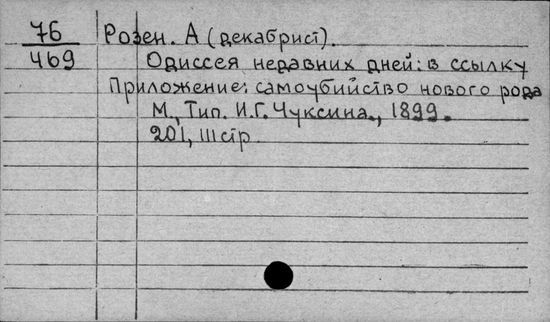 76 Розен. А (декабрист).
469 Одиссея недавних дней: в ссылку
Приложение: самоубийство нового рода
М., Тип. И.Г. Чуксина., 1899.
201, III стр